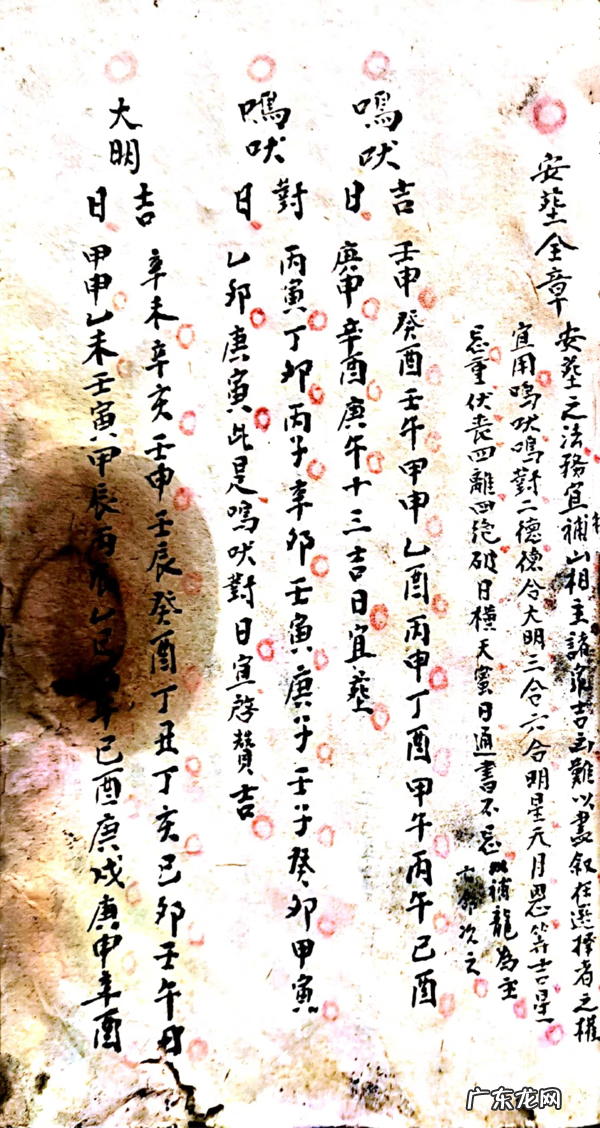 安塟全章
安塟之法務宜補山相主諸家吉凶難以盡叙在選擇者之權
宜用鳴吠鳴對二德德合大明三合六合明星天月恩等吉星
忌重伏喪四離四絶破日横天蜜日通書不忌 以補龍為主
次之
鳴吠吉日
壬申癸酉壬午甲申乙酉丙申丁酉甲午丙午己酉
庚申辛酉庚午十三吉日宜塟
鳴吠對日
丙寅丁卯丙子辛卯壬寅庚子壬子癸卯甲寅
乙卯庚寅此是鳴吠對日宜啓攢吉
大明吉日
辛未辛亥壬申壬辰癸酉丁丑丁亥己卯壬午
甲申乙未壬寅甲辰丙辰乙巳 己酉庚戌庚申辛酉
广东龙网